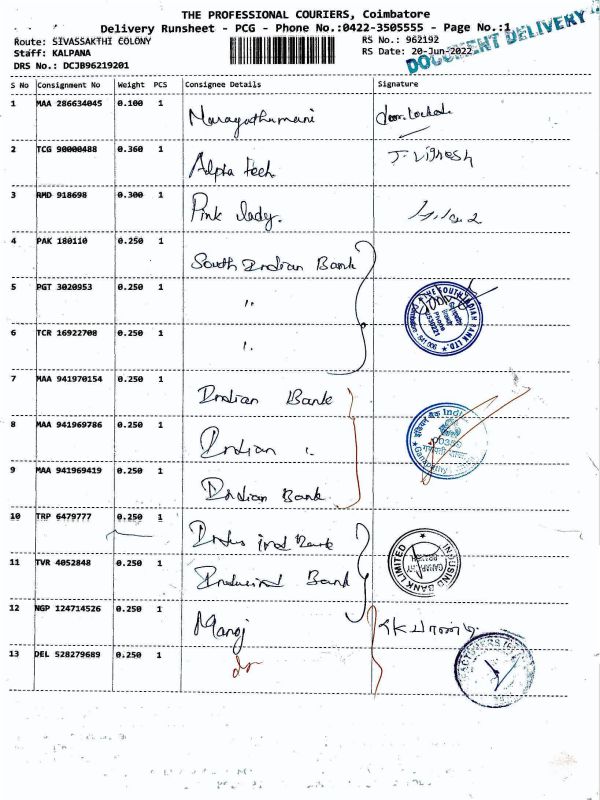 THE PROFESSIONAL COURIERS, Coimbatore
Delivery Runsheet - PCG - Phone No.:0422-3505555 - Page No.:1
Route: SIVASSAKTHI COLONY
RS No.: 962192
Staff: KALPANA
RS Date: 20-Jun-2022
DRS No.: DCJB96219201
DOCUMENT DELIVERY
S No Consignment No Weight PCS Consignee Details Signature
1 MAA 286634045 0.100 1 door locked
2 TCG 90000488 0.360 1 Alpha tech J. Vignesh
3 RMD 918698 0.300 1 Pink lady.
4 PAK 180110 0.250 1 South Indian Bank
5 PGT 3020953 0.250 1 "
THE SOUTH INDIAN BANK LTD.
6 TCR 16922708 0.250 1 "
7 MAA 941970154 0.250 1 Indian Bank
8 MAA 941969786 0.250 1 Indian "
इंडियन बैंक
9 MAA 941969419 0.250 1 Indian Bank
10 TRP 6479777 0.250 1 Indus ind Bank
11 TVR 4052848 0.250 1 Indusind Bank
INDUSIND BANK LIMITED
12 NGP 124714526 0.250 1 Manoj
13 DEL 528279689 0.250 1 do